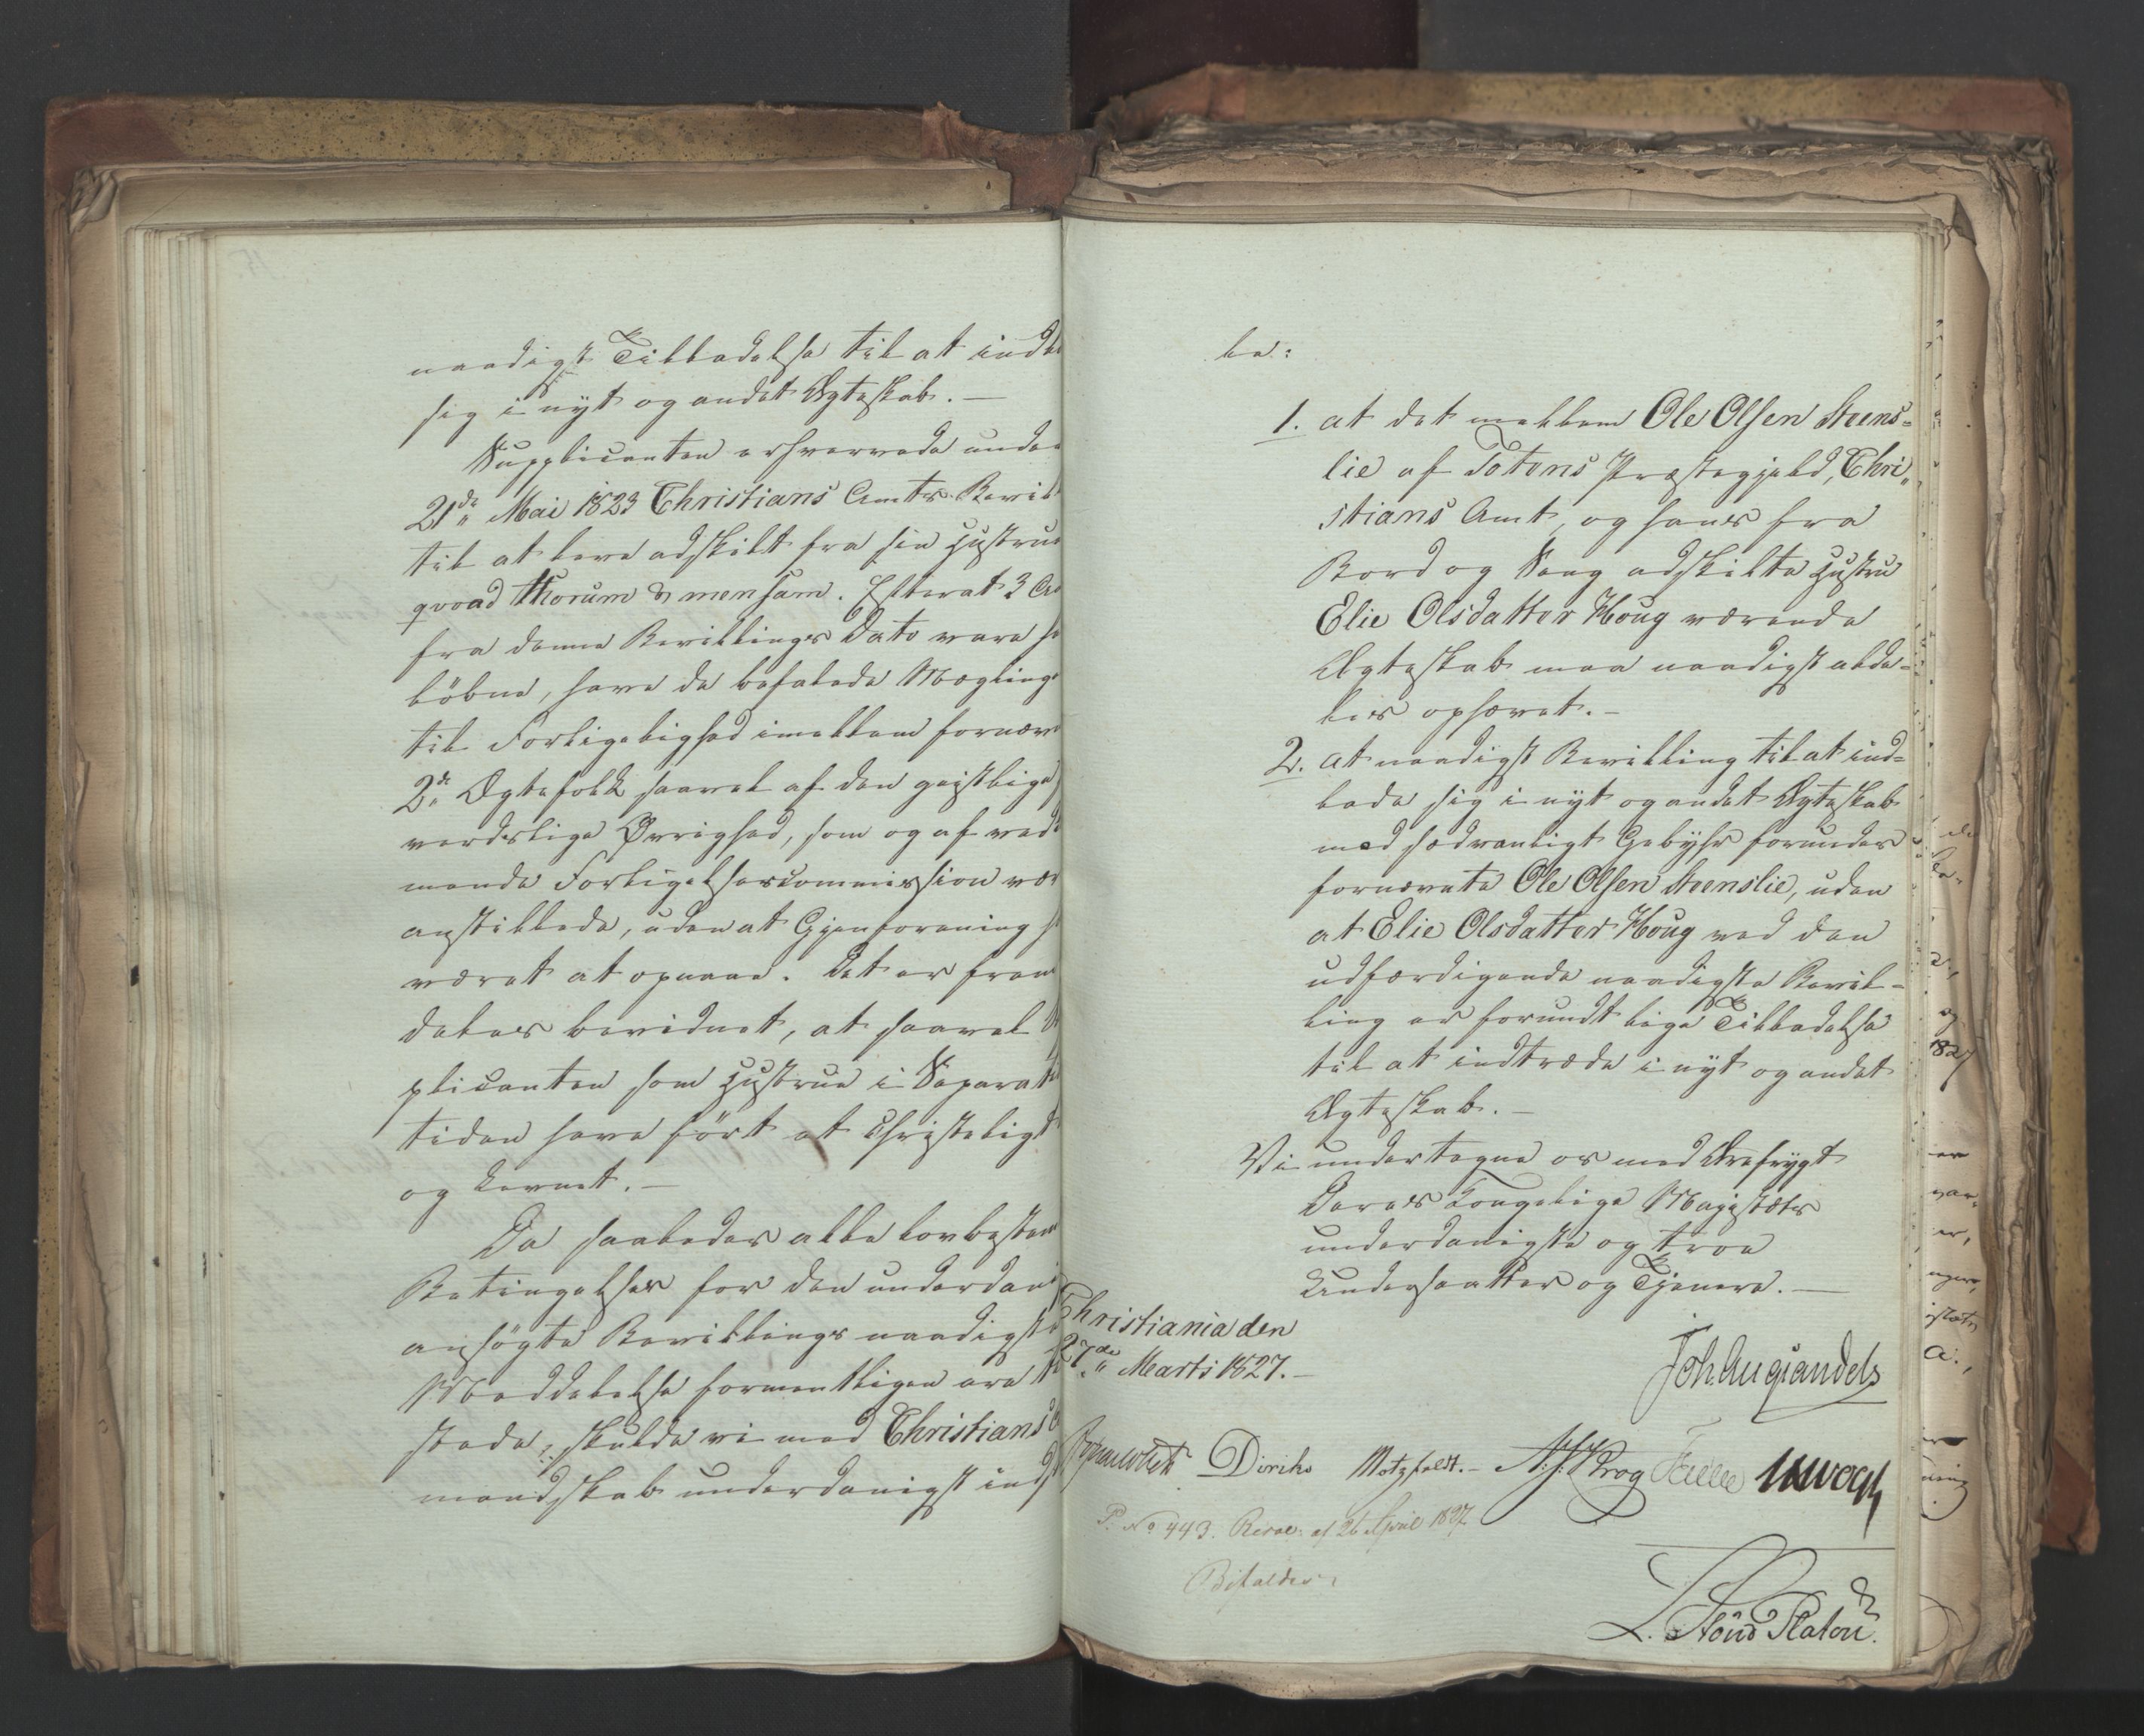 naadigst Tilladelse til at indl
sig i nyt og andet Ægteskab. —
Supplicanten erhvervede under
21de Mai 1823 Christians Amts Bevil
til at leve adskilt fra sin Hustrue
qvoad thorum & mensam. Efterat 3 Aa
fra denne Bevillings Dato vare for
løbne, have de befalede Mæglinger
til Forligelighed imellem fornævn
2de Ægtefolk saavel af den geistlige
verdslige Øvrighed, som og af ved
mende Forligelsescommission vær
anstillede, uden at Gjenforening h
været at opnaae. Det er frem
deles bevidnet, at saavel S
plicanten som Hustrue i Separat
tiden have ført et christeligt
og Levnet. —
Da saaledes alle lovbestem
Betingelser for den underdan
ansøgte Bevillings naadigste
Meddelelse formentligen ere til
stede, skulde vi med Christians A
mandskab underdanigst inds
le:
1. at det mellem Ole Olsen Steens=
lie af Totens Præstegjeld, Chri„
stians Amt, og hans fra
Bord og Seng adskilte Hustru
Elie Olsdatter Houg værende
Ægteskab maa naadigst alde=
les ophævet. —
2. at naadigst Bevilling til at ind=
lade sig i nyt og andet Ægteskab
med sædvanligt Gebyhr forundes
fornævnte Ole Olsen Steenslie, uden
at Elie Olsdatter Houg ved den
udfærdigende naadigste Bevil=
ling er forundt lige Tilladelse
til at indtræde i nyt og andet
Ægteskab. —
Vi undertegne os med Ærefrygt
Deres Kongelige Majestæts
underdanigste og troe
Undersaatter og Tjenere. —
Christiania den
27de Marts 1827. —
Joh. Aug. Sandels
Jonas Collett Diriks Motzfeldt. — A. S. Krog Fasting
P. No 443. Resol: af 26 April 1827
Bifaldes
L. Stoud Platou.
1827